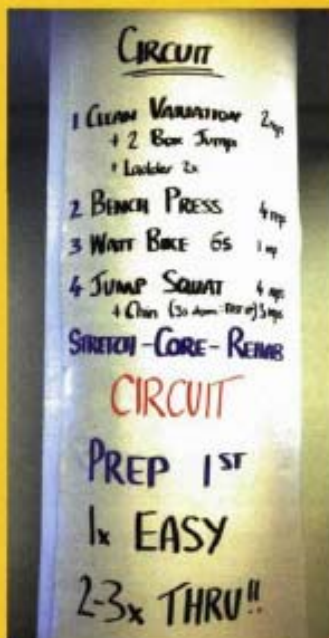 CIRCUIT
1 CLEAN VARIATION 2 reps
+ 2 Box Jump
+ Ladder 2x
2 BENCH PRESS 4 rep
3 WATT BIKE 6S 1 rep
4 JUMP SQUAT 4 reps
+ Chin (3s down FAST UP) 3 reps
STRETCH - CORE - REHAB
CIRCUIT
PREP 1ST
1x EASY
2-3x THRU!!